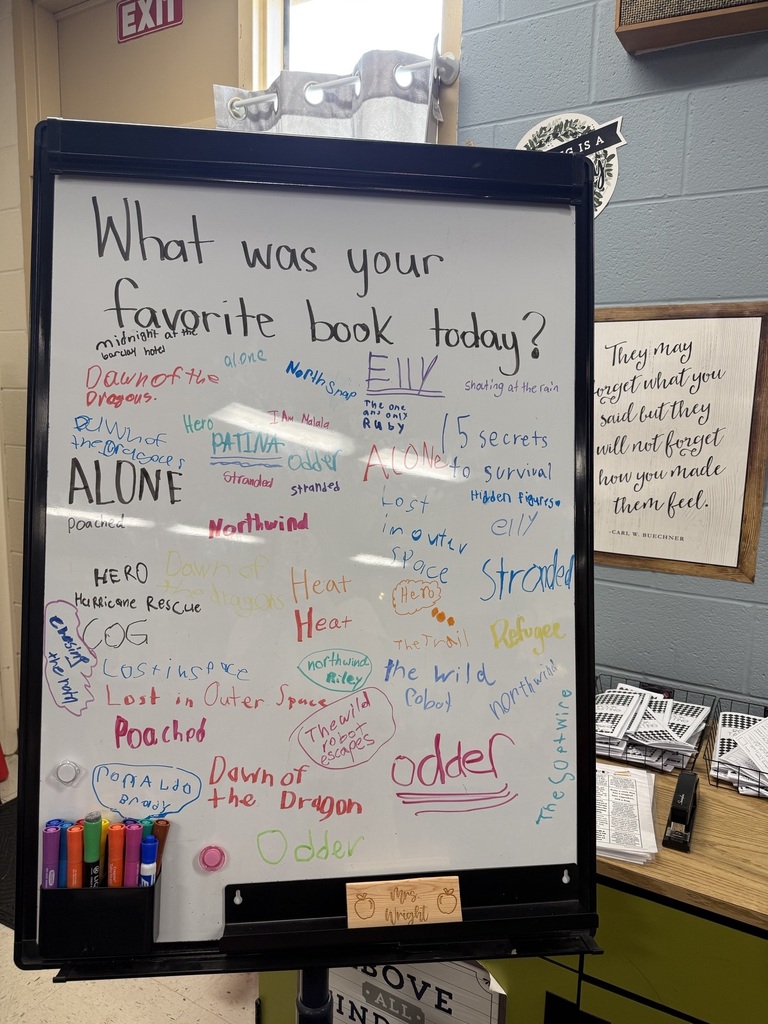 EXIT
G IS A
What was your
favorite book today?
midnight at the
barclay hotel
alone
North Snap
Elly
shouting at the rain
Dawn of the
Dragons.
The one
and only
Ruby
Hero
I Am Malala
Dawn of
the Dragoces
PATINA
Odder
ALONE
15 secrets
to survival
ALONE
Stranded
stranded
Lost
in outer
space
Hidden Figures
elly
Poached
Northwind
HERO
Dawn of
the dragons
Heat
Hero
Stranded
Hurricane Rescue
COG
Heat
The Trail
Refugee
chasing
Lost in space
northwind
Riley
the wild
robot
northwind
Lost in Outer Space
Poached
The wild
robot
escapes
odder
The Softwire
Brady
Dawn of
the Dragon
Odder
Mrs
Wright
They may
forget what you
said but they
will not forget
how you made
them feel.
-CARL W. BUECHNER
ABOVE
ALL